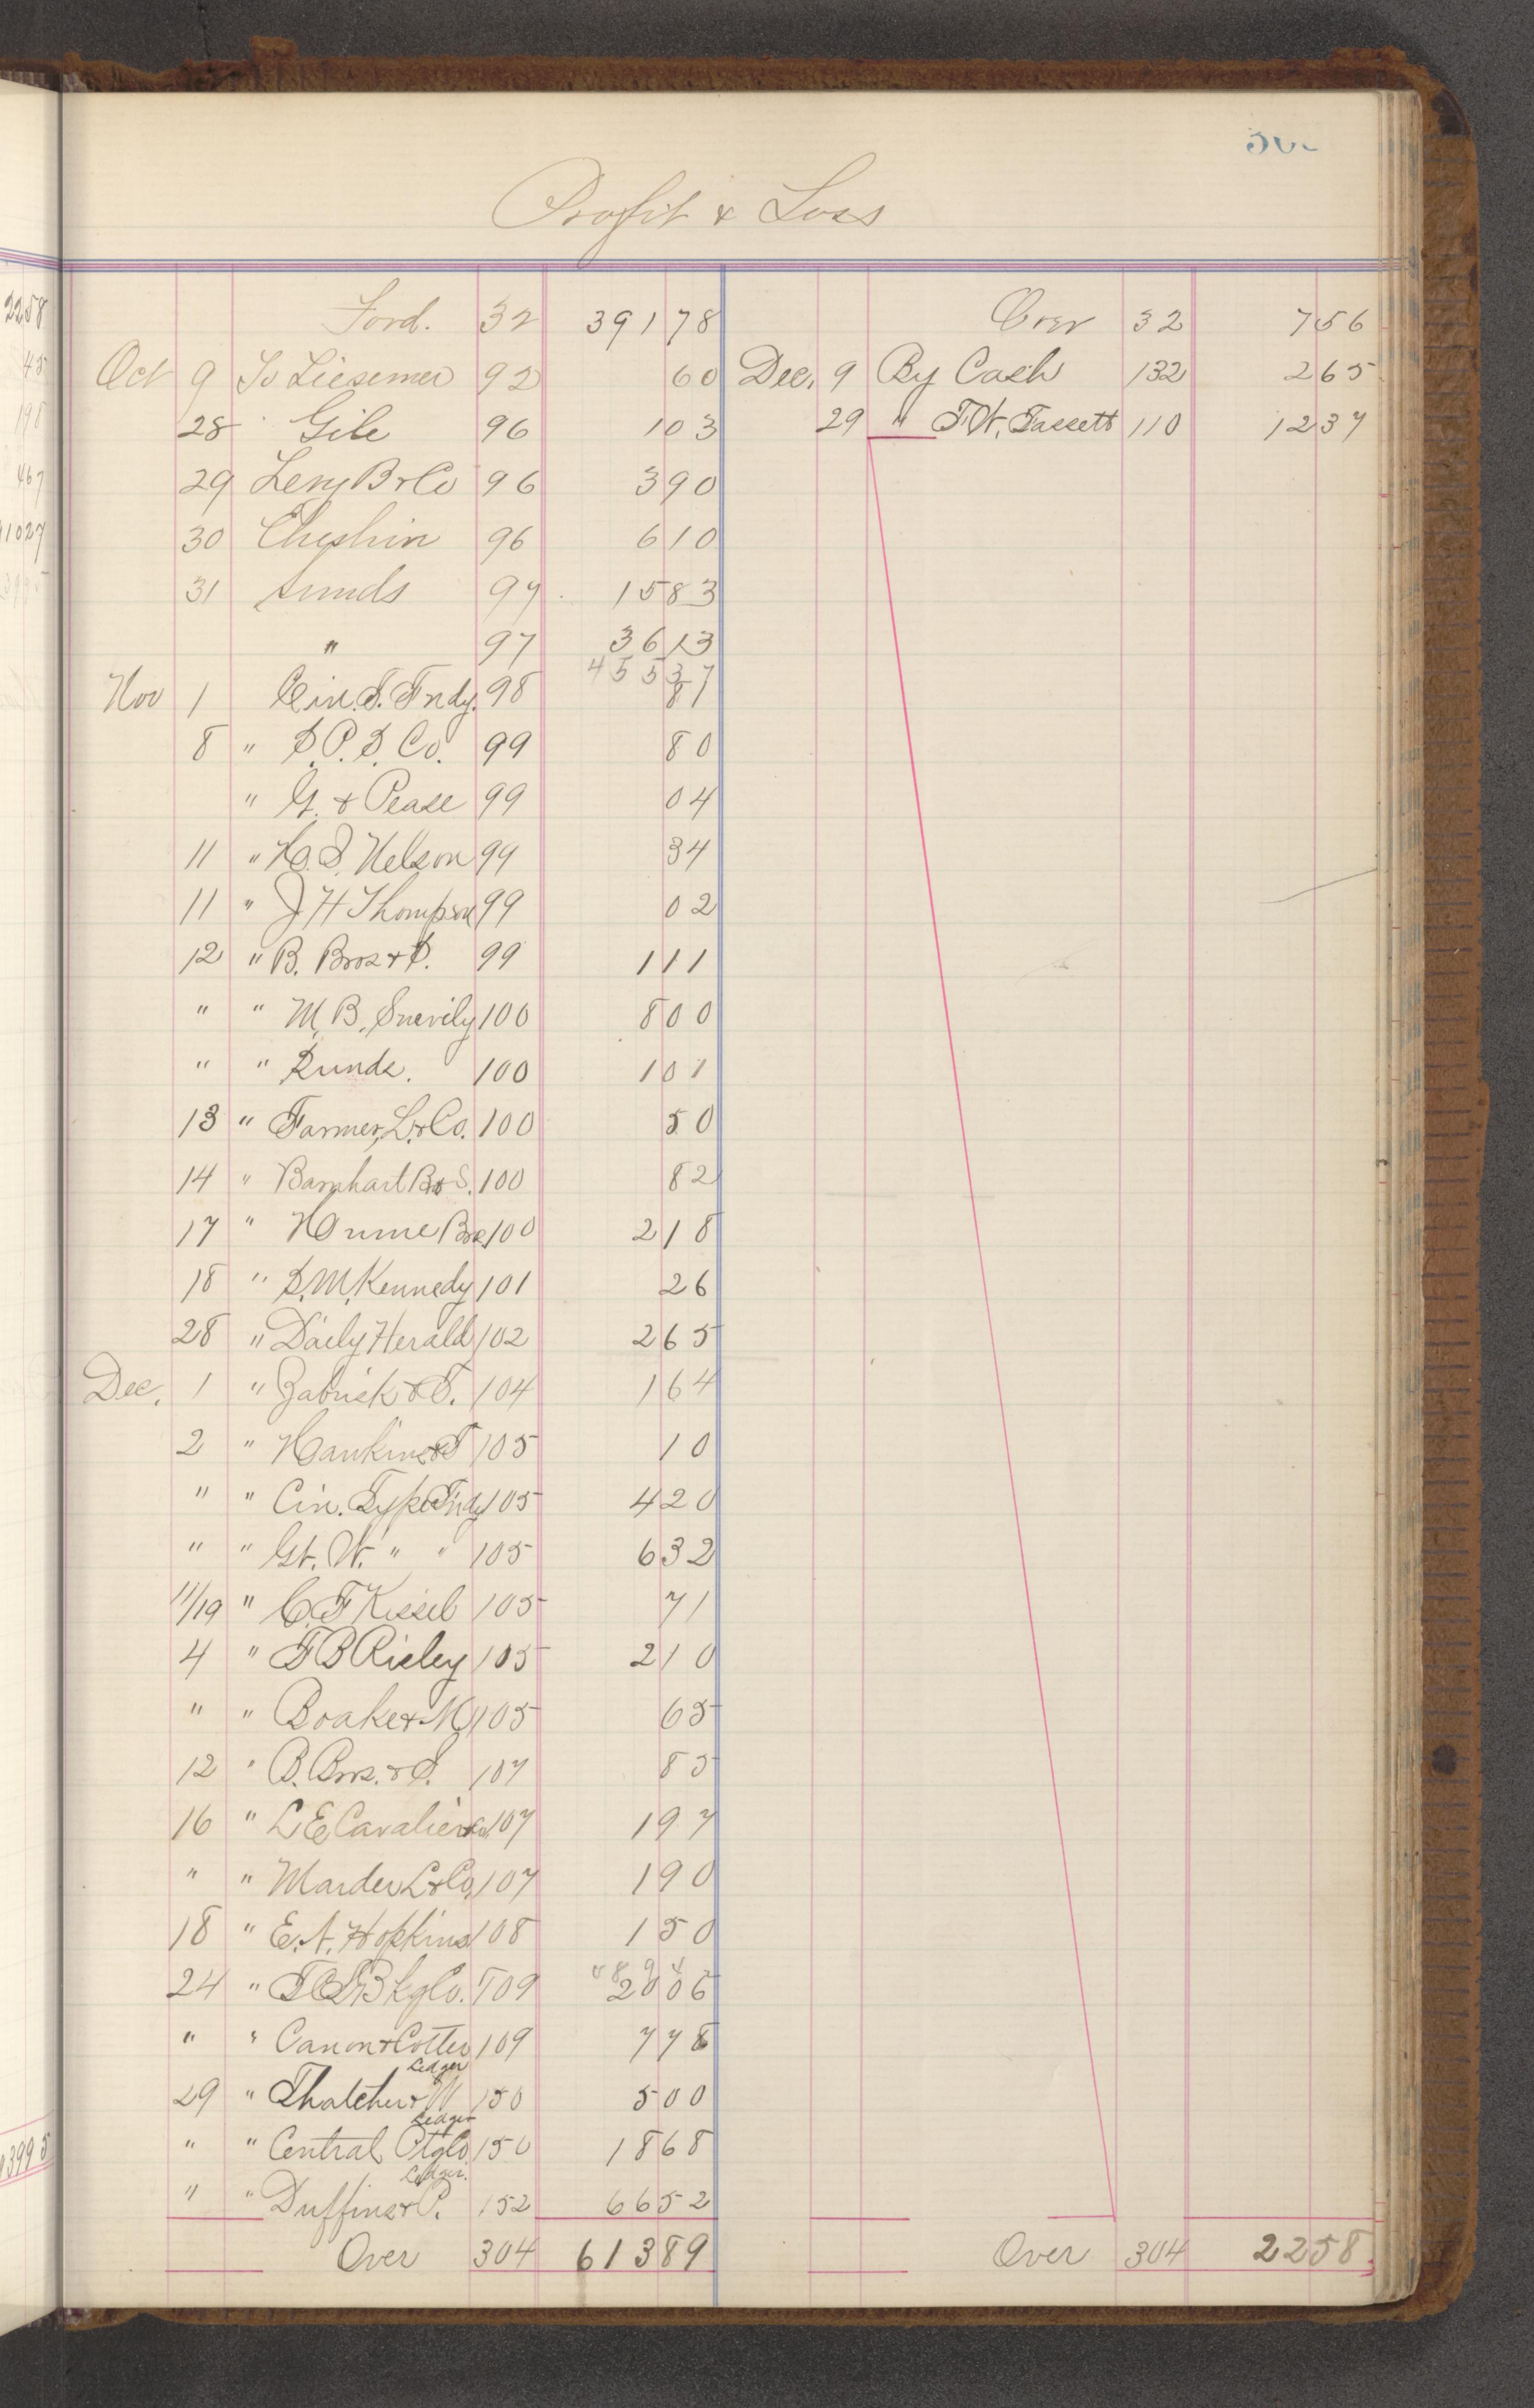 Profit & Loss
Ford. 32 391 78 Over 32 7 56
Oct 9 To Liesemer 92 60 Dec. 9 By Cash 132 2 65
28 Gile 96 1 03 29 " F.W. Fassett 110 12 37
29 Levy B & Co 96 3 90
30 Cheshin 96 6 10
31 Sunds 97 15 83
" 97 36 13
455 37
Nov 1 Cin. T. Fndy. 98 81
8 " S.P.S. Co. 99 80
" G. & Pease 99 04
11 " H.S. Nelson 99 34
11 " J H Thompson 99 02
12 " B. Bros & S. 99 1 11
" " M.B. Snevily 100 8 00
" " Sunds. 100 1 01
13 " Farmer, L. & Co. 100 50
14 " Barnhart Bro S. 100 82
17 " Hume Bros 100 2 18
18 " S.M. Kennedy 101 26
28 " Daily Herald 102 2 65
Dec. 1 " Zabrisk & T. 104 1 64
2 " Hawkins & T 105 10
" " Cin. Type Fndy 105 4 20
" " Gt. W. " " 105 6 32
11/19 " C. F Kissel 105 71
4 " F B Risley 105 2 10
" " Boake & M 105 65
12 " B. Bros. & S. 107 85
16 " L E Cavalier & Co. 107 1 97
" " Marder L & Co, 107 1 90
18 " E. N. Hopkins 108 1 50
489 4
24 " Bkg Co. 109 20 06
" " Canon & Cotter 109 7 78
Ledger
29 " Thatcher & W 150 5 00
Ledger
" " Central Ptg Co 150 18 68
Ledger.
" " Duffins & P. 152 66 52
Over 304 613 89 Over 304 22 58
2258
1027
3995